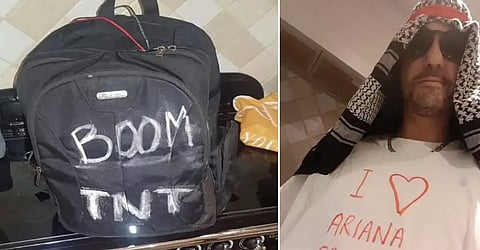 BOOM
TNT
I ♡
ARIANA